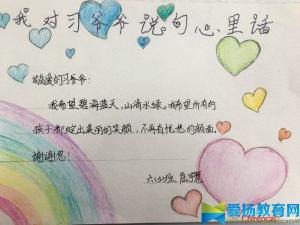 我对习爷爷说句心里话
敬爱的习爷爷:
我希望碧海蓝天,山清水绿。我希望所有的
孩子都绽出美丽的笑颜,不再有忧愁的颜面。
谢谢您!
六(2)班
爱扬教育网